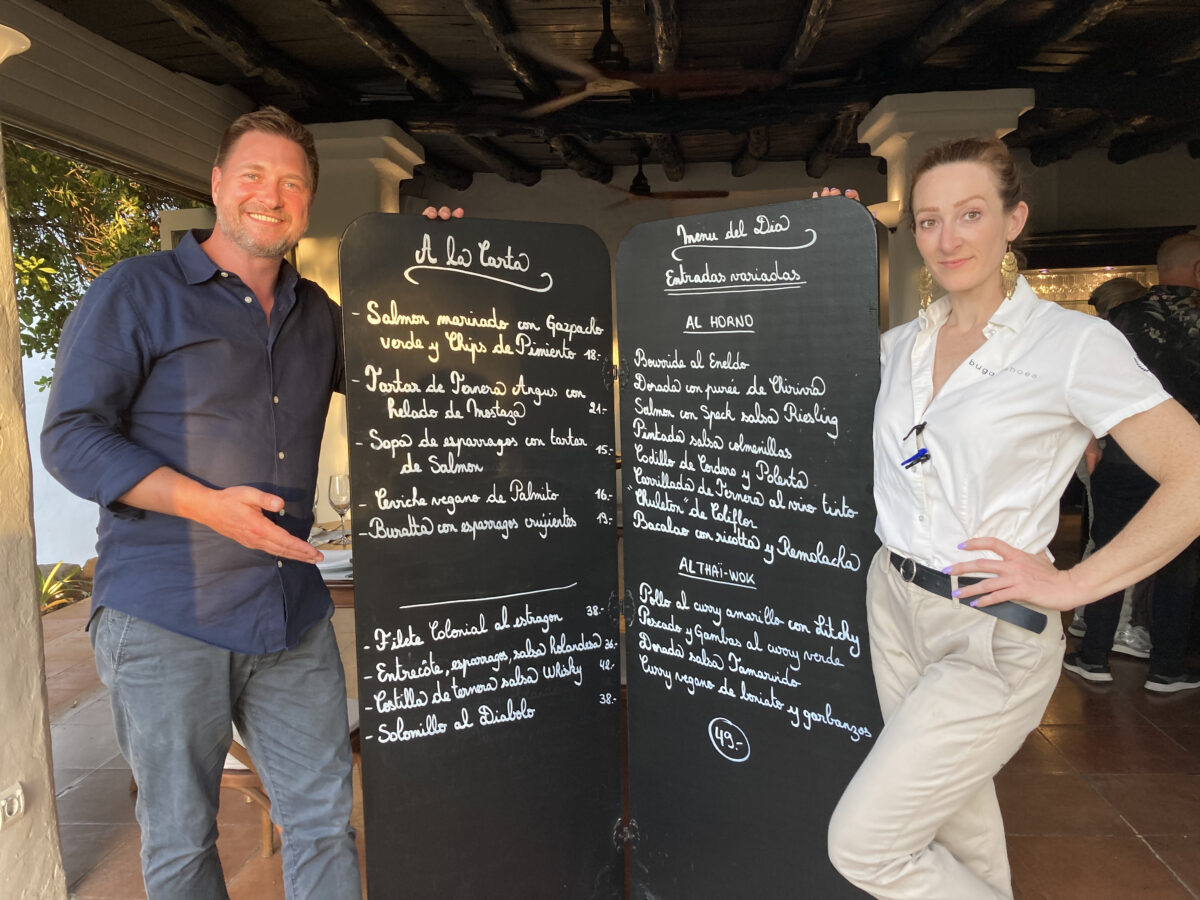 A la Carta
- Salmon marinado con Gazpacho
verde y Chips de Pimiento 18.-
- Tartar de Ternera Angus con
helado de Mostaza 21.-
- Sopa de esparragos con tartar
de Salmon 15.-
- Ceviche vegano de Palmito 16.-
- Buratta con esparragos crujientes 19.-
- Filete Colonial al estragon 38.-
- Entrecôte, esparragos, salsa Holandesa 36.-
- Costilla de ternera salsa Whisky 42.-
- Solomillo al Diabolo 38.-
Menu del Dia
Entradas variadas
AL HORNO
Bourride al Eneldo
Dorada con pureé de Chirivia
Salmon con Speck salsa Riesling
Pintada salsa colmenillas
Codillo de Cordero y Polenta
Carrillada de Ternera al vino tinto
"Chuleton" de Coliflor
Bacalao con ricotta y Remolacha
AL THAÏ-WOK
Pollo al curry amarillo con Litchy
Pescado y Gambas al curry verde
Dorada salsa Tamarindo
Curry vegano de boniato y garbanzos
49.-